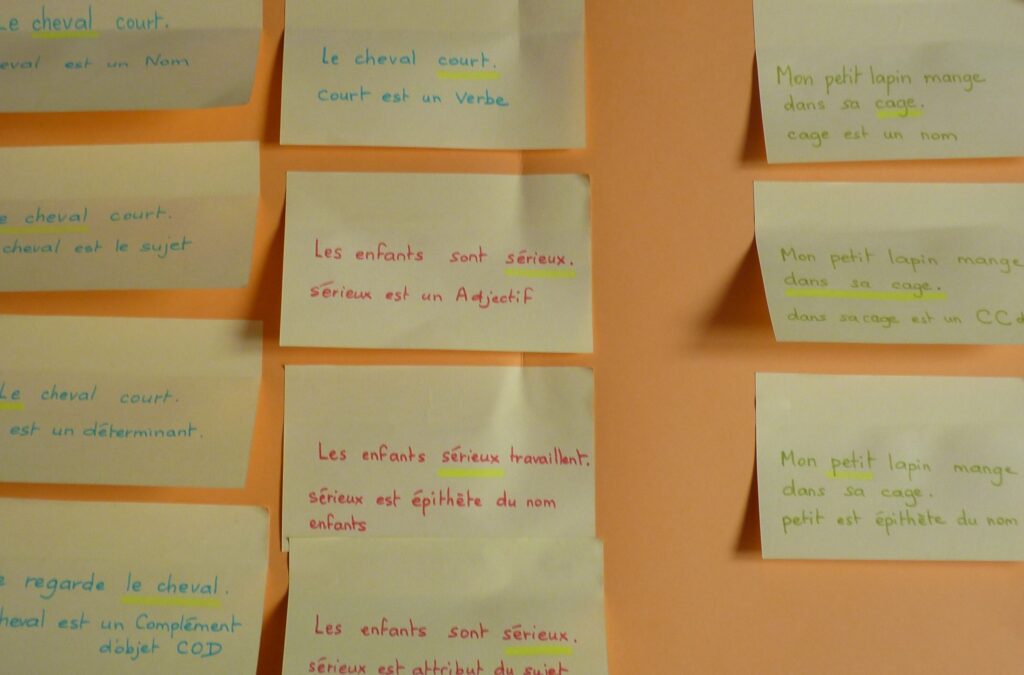 Le cheval court.
est un Nom
Le cheval court.
cheval est le sujet
Le cheval court.
est un déterminant.
regarde le cheval.
est un Complément
d'objet COD
Le cheval court.
Court est un Verbe
Les enfants sont sérieux.
sérieux est un Adjectif
Les enfants sérieux travaillent.
sérieux est épithète du nom
enfants
Les enfants sont sérieux.
sérieux est attribut du sujet
Mon petit lapin mange
dans sa cage.
cage est un nom
Mon petit lapin mange
dans sa cage.
dans sa cage est un CC
Mon petit lapin mange
dans sa cage.
petit est épithète du nom